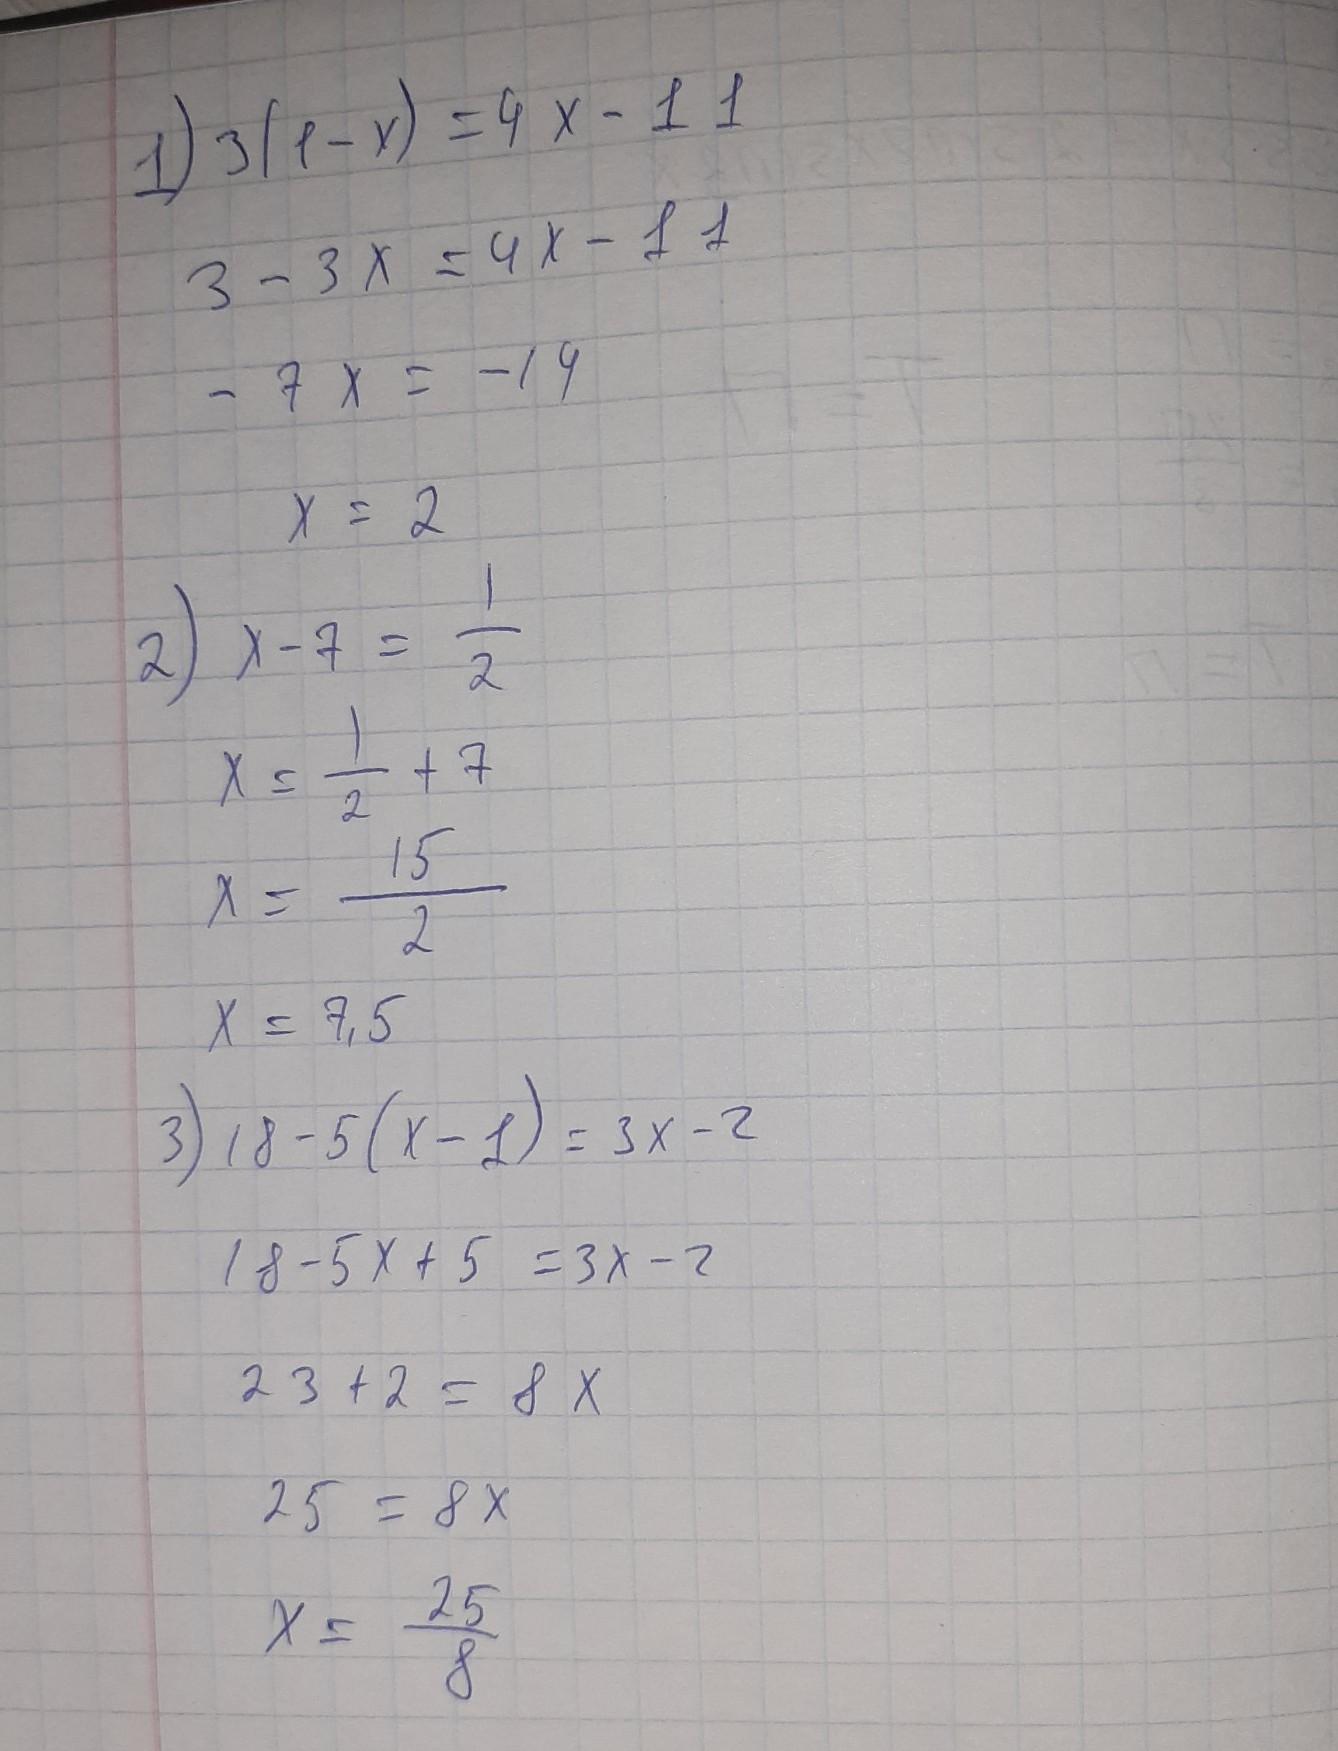 1) 3(1-x) = 4x - 11
3 - 3x = 4x - 11
- 7x = -14
x = 2
2) x - 7 = 1/2
x = 1/2 + 7
x = 15/2
x = 7,5
3) 18 - 5(x - 1) = 3x - 2
18 - 5x + 5 = 3x - 2
23 + 2 = 8x
25 = 8x
x = 25/8